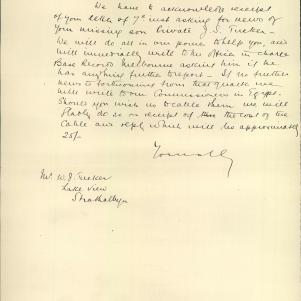 We have to acknowledge receipt
of your letter of 7th inst asking for news of
your missing son Private J.S. Tucker -
We will do all in our power to help you, and
will immediately write to the Officer in charge
Base Records Melbourne asking him if he
has anything further to report - If no further
news is forthcoming from that quarter we
will write to our Commissioners in Egypt.
Should you wish us to cable them we will
gladly do so on receipt of the cost of the
Cable and reply which will be approximately
25/-
Mr W.J. Tucker
Lake View
Strathalbyn